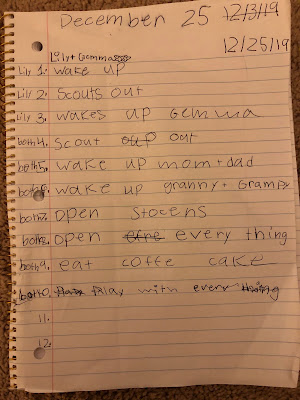 December 25 12/3/19
12/25/19
Lily + Gemma
Lily 1. wake up
Lily 2. Scouts out
Lily 3. wakes up Gemma
both 4. Scout out
both 5. wake up mom + dad
both 6. wake up granny + Grampy
both 7. open stocens
both 8. open every thing
both 9. eat coffe cake
both 10. Play with every thing
11.
12.